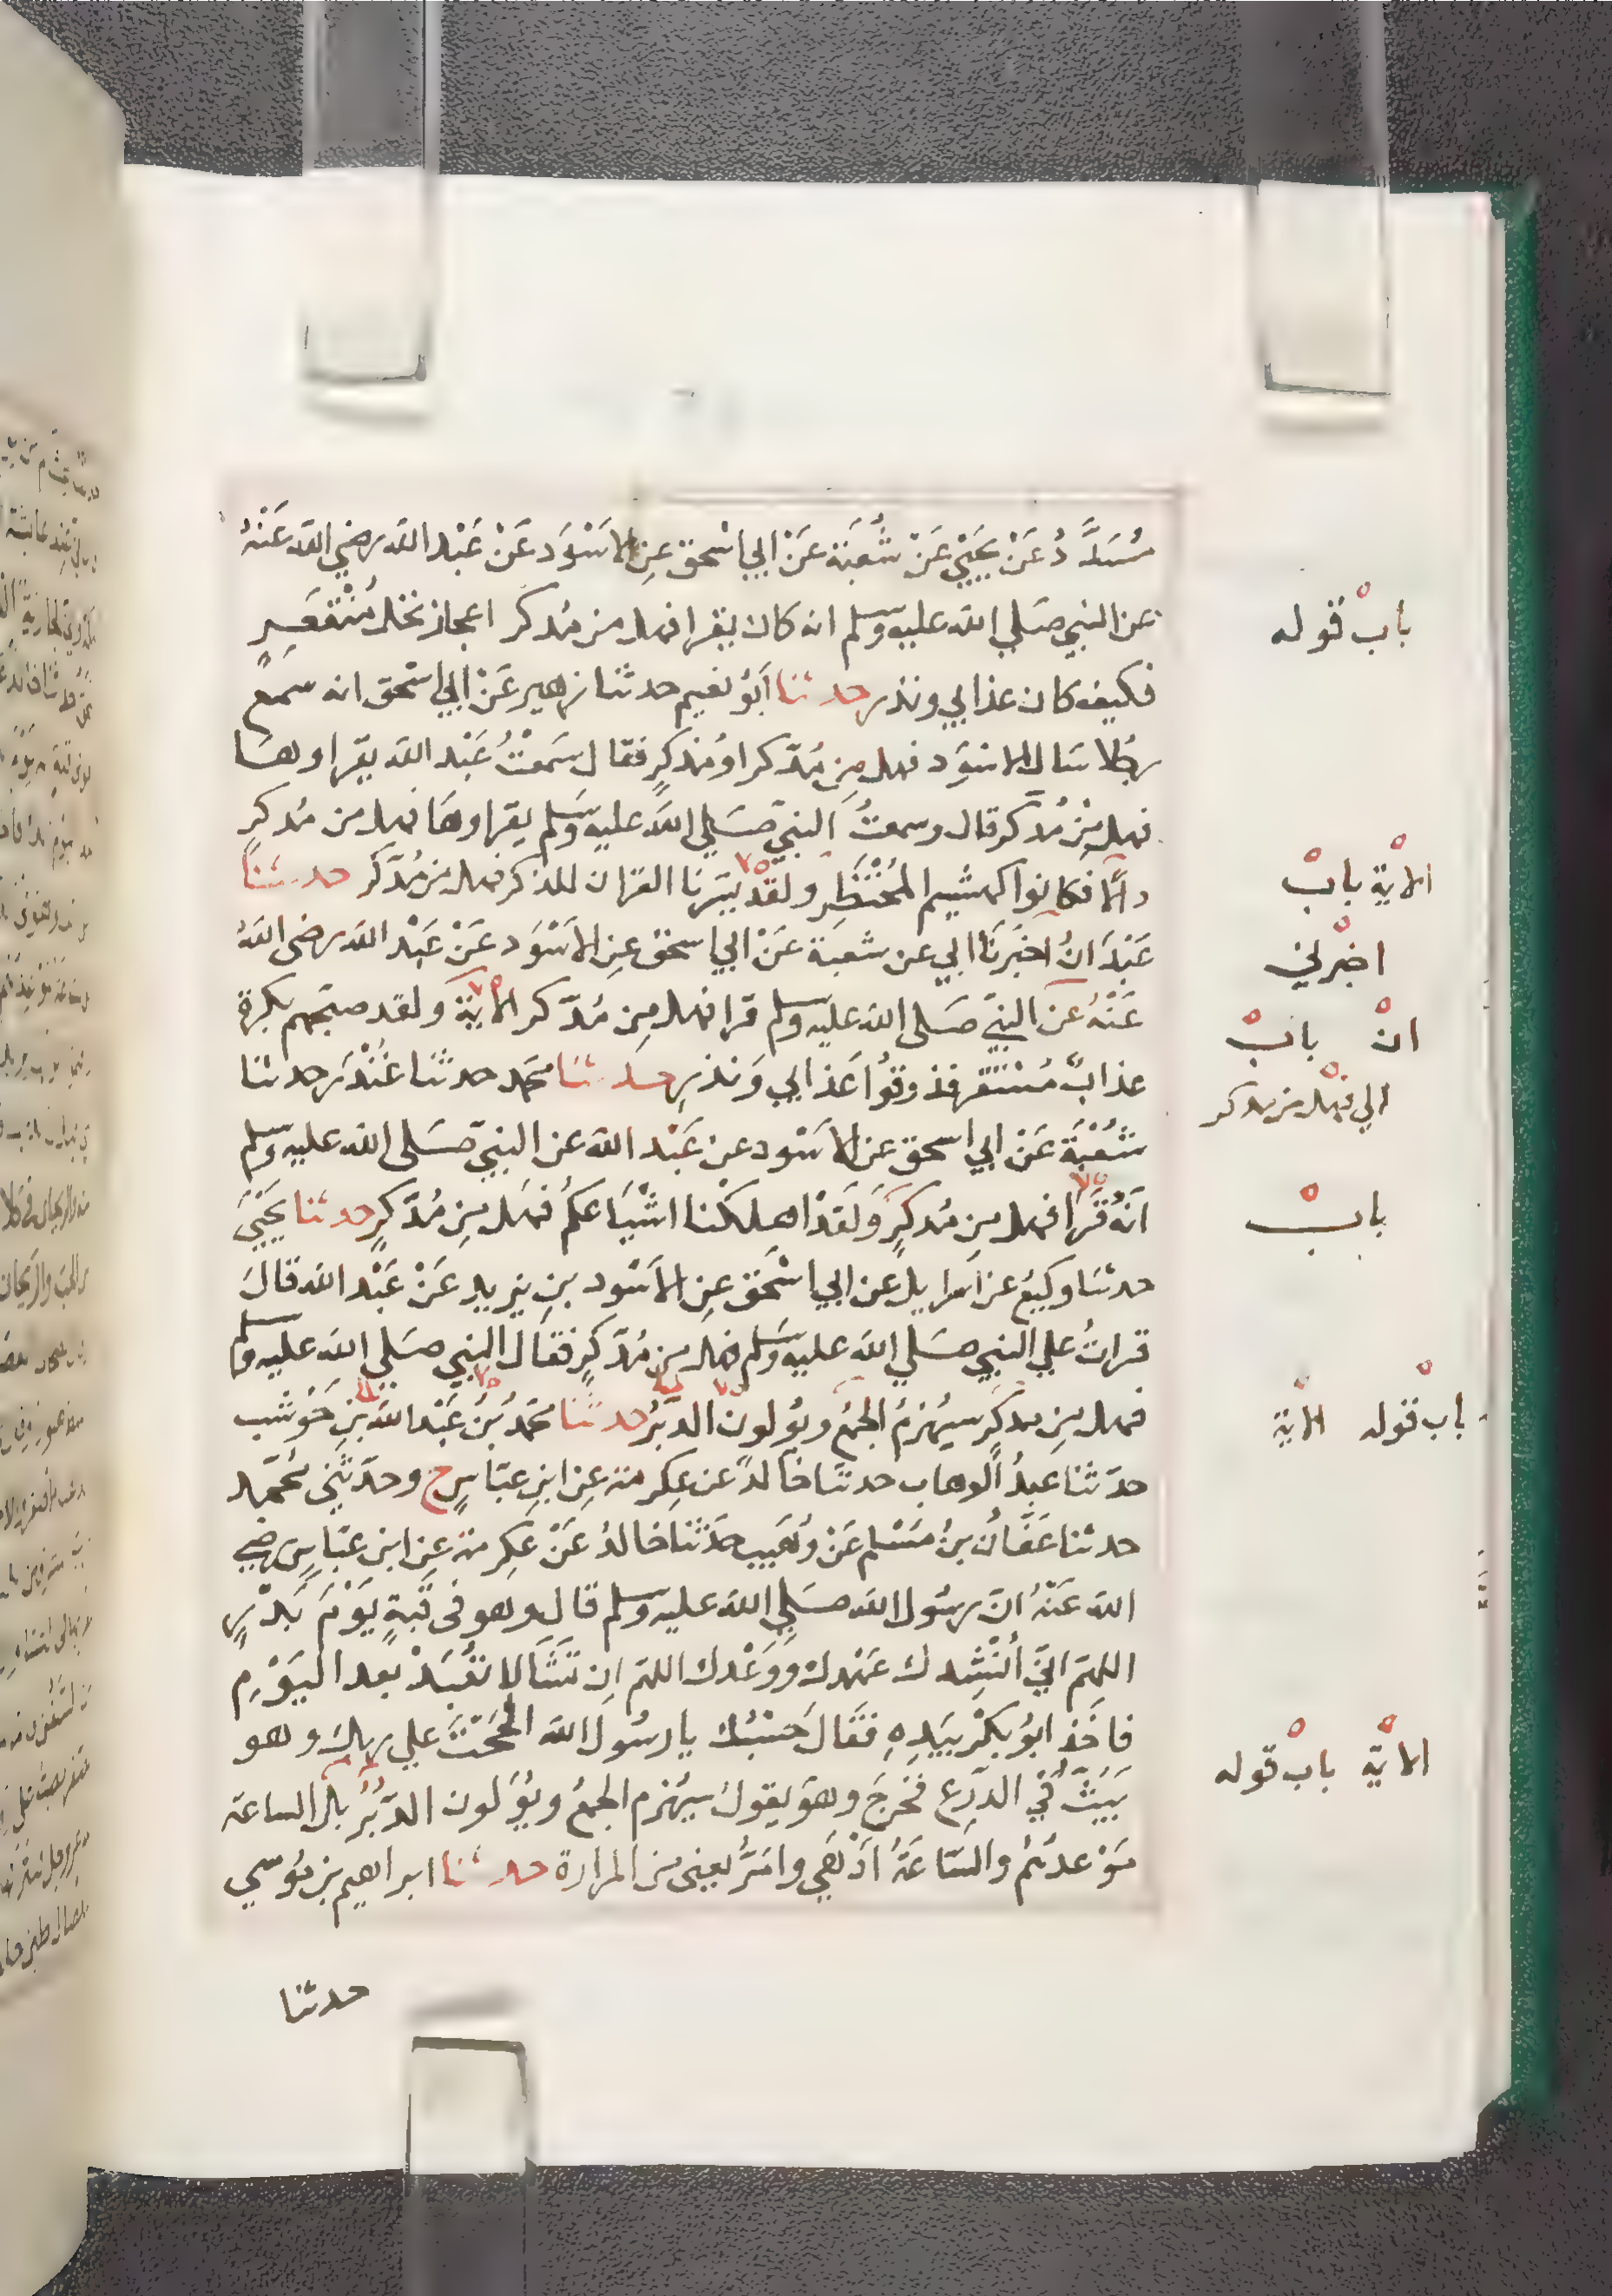 مُسَدَّدُ عَنْ يَحْيَي عَنْ شُعَبَة عَنْ ابي اسْحق عنِ الاَسْوَد عَنْ عَبْد الله رضي الله عَنْهُ
عن النبي صَلي الله عليه وسلم انه كان يقرا فهل من مُدكر اعجاز نخل مُنْقَعِرٍ
فكيف كان عذابي ونذر حدثنا اَبُو نعيم حدثنا زهير عَنْ ابي اسْحق انه سمع
رجُلا سَال الاسْوَد فهل مِن مُدّكر اوْ مُذكرٍ فقال سَمعْتُ عَبْد الله يقراوهَا
فهل مِنْ مُدكر قال وسمعتُ النبيَ صَلي الله عليه وسلم يقراوهَا فهل من مُدكرٍ
دالًا فكانوا كهشيم المحُتَظِرِ ولقد يسَرنَا القرَان للذكر فهل من مُدّكر حدثنا
عَبْدَانُ اخبَرنَا ابي عن شعبَة عَنْ ابي اسحق عنِ الاَسْوَد عَنْ عَبْد الله رضى اللهُ
عَنْهُ عن النبي صَلى الله عليه وسلم قرا فهل مِن مُدّكر الاية ولقد صبّحهم بكرة
عذابٌ مُسْتَقر فذوقوُا عَذابي وَنذرِ حدثنا محمد حدثنَا غُنْدَر حدثنا
شُعْبَة عَنْ ابي اسحق عن الاسْود عن عَبْد الله عن النبي صَلى الله عليه وسلم
انَهُ قَرا فهل مِن مُدكرٍ وَلقَدْ اهلكْنا اشْيَاعكمُ فهَل مِن مُدّكرٍ حدثنا يَحْيَيَ
حدثنَا وكيعُ عن اسرايل عن ابي اسْحَق عنِ الاَسْود بنِ يزيد عَنْ عَبْد الله قالَ
قراتُ علي النبي صَلي الله عليه وسَلم فهل من مُذّكرٍ فقال النبي صَلي الله عليه وسلم
فهل مِن مدكرٍ سيُهزمُ الجمْعُ ويُولون الدبُرُ حدثنَا محَمدُ بْنُ عَبْد الله بنِ حَوْشب
حدّثنا عبدُ الوهاب حدثنَا خالدٌ عن عِكرمة عنِ ابنِ عبَاسٍ ح وحدّثني محُمَد
حدثنا عَفّانُ بنُ مسَلم عَنْ وُهَيب حَدّثنَا خالدُ عَنْ عَكِرمة عنِ ابن عبَاسٍ رضي
الله عَنْهُ انَ رسُول الله صَلي الله عليه وسلم قال وهو فى قبةٍ يَوْمَ بَدْرٍ
اللهمّ انيّ اُنْشِدك عَهدك ووَعْدك اللهمّ ان تَشَا لا تُعْبَدْ بعد اليَوْمِ
فاخَذ ابوُ بكرٍ بيَدِهِ فقالَ حَسْبُك يا رسُول الله الحْحَتَ علي ربك وهو
يَثِبُ في الدّرْع فخرجَ وهوَ يقولُ سيُهزم الجمعُ ويُوَلون الدّبُرُ بل الساعة
مَوْعدهُمْ والسّاعَةُ ادْهَي وامَرُّ يعني من المرارة حدثنا ابراهيم بن مُوسي
حدثنا
بابُ قوله
الاية باب
اخبرني
ان باب
الي فهل من مدكر
باب
باب قوله الاية
الاية باب قوله